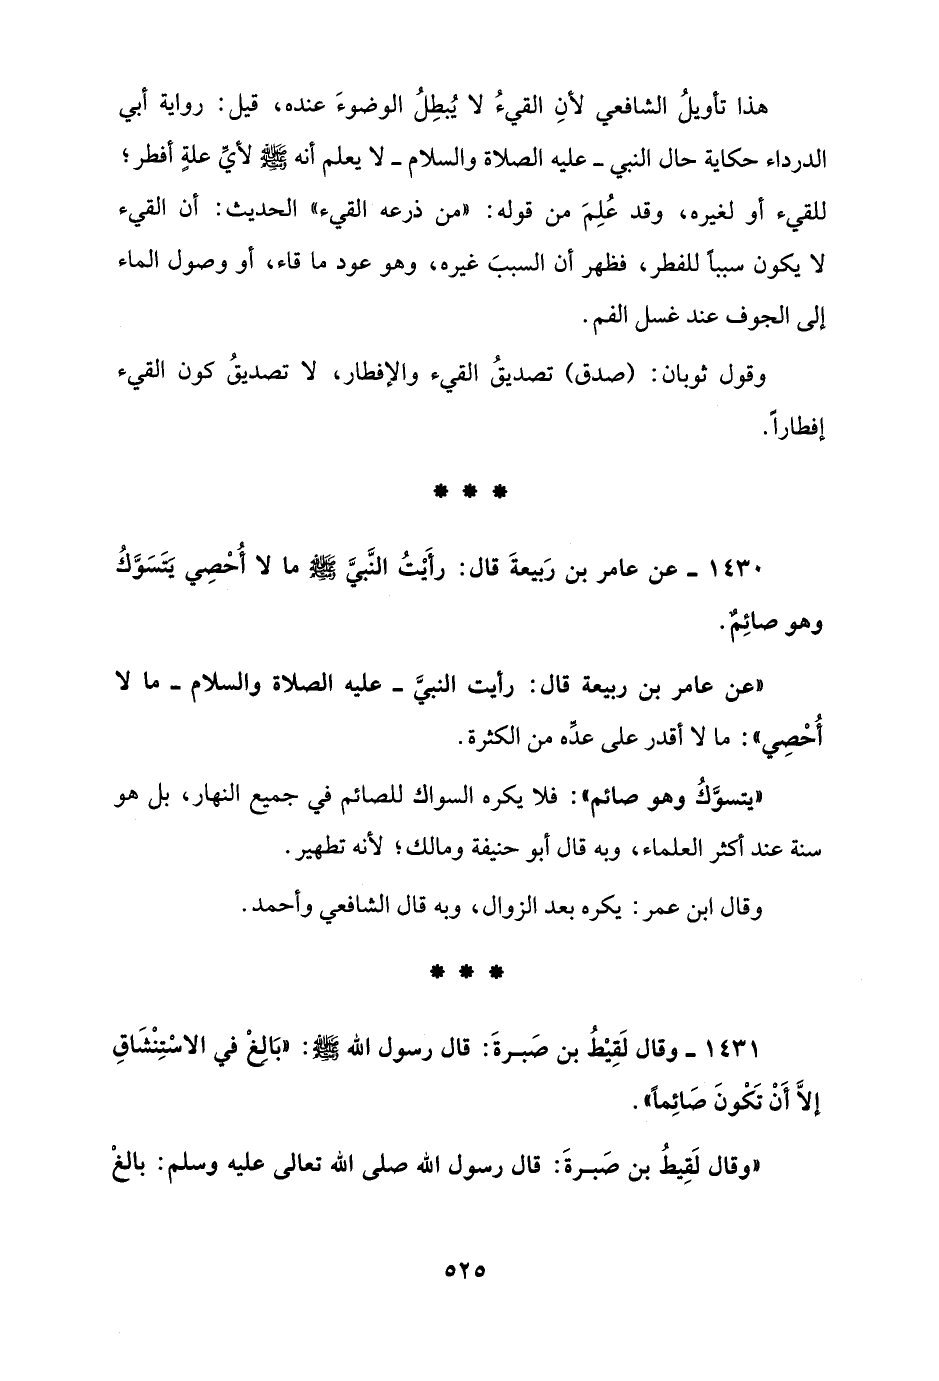 هذا تأويلُ الشافعي لأنِ القيءُ لا يُبطِلُ الوضوءَ عنده، قيل: رواية أبي
الدرداء حكاية حال النبي ـ عليه الصلاة والسلام ـ لا يعلم أنه ﷺ لأيِّ علةٍ أفطر؛
للقيء أو لغيره، وقد عُلِمَ من قوله: «من ذرعه القيء» الحديث: أن القيء
لا يكون سبباً للفطر، فظهر أن السببَ غيره، وهو عود ما قاء، أو وصول الماء
إلى الجوف عند غسل الفم.
وقول ثوبان: (صدق) تصديقُ القيء والإفطار، لا تصديقُ كون القيء
إفطاراً.
* * *
١٤٣٠ ـ عن عامر بن رَبيعةَ قال: رأَيْتُ النَّبيَّ ﷺ ما لا أُحْصِي يَتَسَوَّكُ
وهو صائِمٌ.
«عن عامر بن ربيعة قال: رأيت النبيَّ ـ عليه الصلاة والسلام ـ ما لا
أُحْصِي»: ما لا أقدر على عدِّه من الكثرة.
«يتسوَّكُ وهو صائم»: فلا يكره السواك للصائم في جميع النهار، بل هو
سنة عند أكثر العلماء، وبه قال أبو حنيفة ومالك؛ لأنه تطهير.
وقال ابن عمر: يكره بعد الزوال، وبه قال الشافعي وأحمد.
* * *
١٤٣١ ـ وقال لَقِيْطُ بن صَبـرةَ: قال رسول الله ﷺ: «بَالِغْ في الاسْتِنْشَاقِ
إلاَّ أَنْ تَكْونَ صَائِماً».
«وقال لَقِيطُ بن صَبـرةَ: قال رسول الله صلى الله تعالى عليه وسلم: بالغْ
٥٢٥